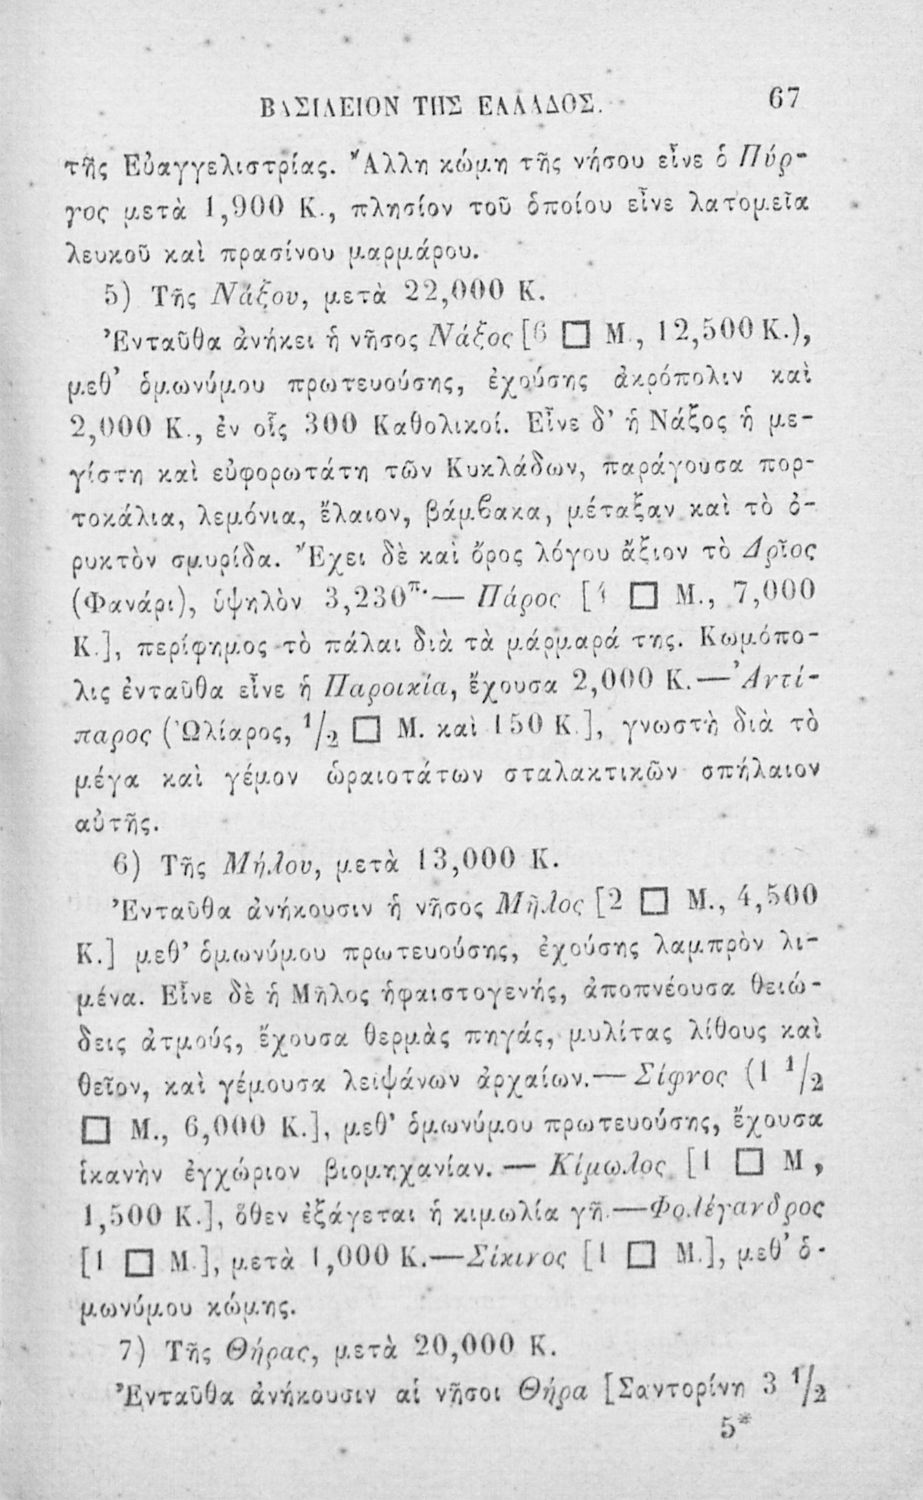 ΒΑΣΙΛΕΙΟΝ ΤΗΣ ΕΛΛΑΔΟΣ. 67
τῆς Εὐαγγελιστρίας. Ἄλλη κώμη τῆς νήσου εἶνε ὁ Πύρ-
γος μετὰ 1,900 Κ., πλησίον τοῦ ὁποίου εἶνε λατομεῖα
λευκοῦ καὶ πρασίνου μαρμάρου.
5) Τῆς Νάξου, μετὰ 22,000 Κ.
Ἐνταῦθα ἀνήκει ἡ νῆσος Νάξος [6 □ Μ., 12,500 Κ.),
μεθ’ ὁμωνύμου πρωτευούσης, ἐχούσης ἀκρόπολιν καὶ
2,000 Κ., ἐν οἷς 300 Καθολικοί. Εἶνε δ’ ἡ Νάξος ἡ με-
γίστη καὶ εὐφορωτάτη τῶν Κυκλάδων, παράγουσα πορ-
τοκάλια, λεμόνια, ἔλαιον, βάμβακα, μέταξαν καὶ τὸ ὀ-
ρυκτὸν σμυρίδα. Ἔχει δὲ καὶ ὄρος λόγου ἄξιον τὸ Δρῖος
(Φανάρι), ὑψηλὸν 3,230π.— Πάρος [4 □ Μ., 7,000
Κ.], περίφημος τὸ πάλαι διὰ τὰ μάρμαρά της. Κωμόπο-
λις ἐνταῦθα εἶνε ἡ Παροικία, ἔχουσα 2,000 Κ.—Ἀντί-
παρος (Ὠλίαρος, 1/2 □ Μ. καὶ 150 Κ.], γνωστὴ διὰ τὸ
μέγα καὶ γέμον ὡραιοτάτων σταλακτικῶν σπήλαιον
αὐτῆς.
6) Τῆς Μήλου, μετὰ 13,000 Κ.
Ἐνταῦθα ἀνήκουσιν ἡ νῆσος Μῆλος [2 □ Μ., 4,500
Κ.] μεθ’ ὁμωνύμου πρωτευούσης, ἐχούσης λαμπρὸν λι-
μένα. Εἶνε δὲ ἡ Μῆλος ἡφαιστογενής, ἀποπνέουσα θειώ-
δεις ἀτμούς, ἔχουσα θερμὰς πηγάς, μυλίτας λίθους καὶ
θεῖον, καὶ γέμουσα λειψάνων ἀρχαίων.— Σίφνος (1 1/2
□ Μ., 6,000 Κ.], μεθ’ ὁμωνύμου πρωτευούσης, ἔχουσα
ἱκανὴν ἐγχώριον βιομηχανίαν. — Κίμωλος [1 □ Μ,
1,500 Κ.], ὅθεν ἐξάγεται ἡ κιμωλία γῆ.—Φολέγανδρος
[1 □ Μ.], μετὰ 1,000 Κ.—Σίκινος [1 □ Μ.], μεθ’ ὁ-
μωνύμου κώμης.
7) Τῆς Θήρας, μετὰ 20,000 Κ.
Ἐνταῦθα ἀνήκουσιν αἱ νῆσοι Θήρα [Σαντορίνη 3 1/2
5*